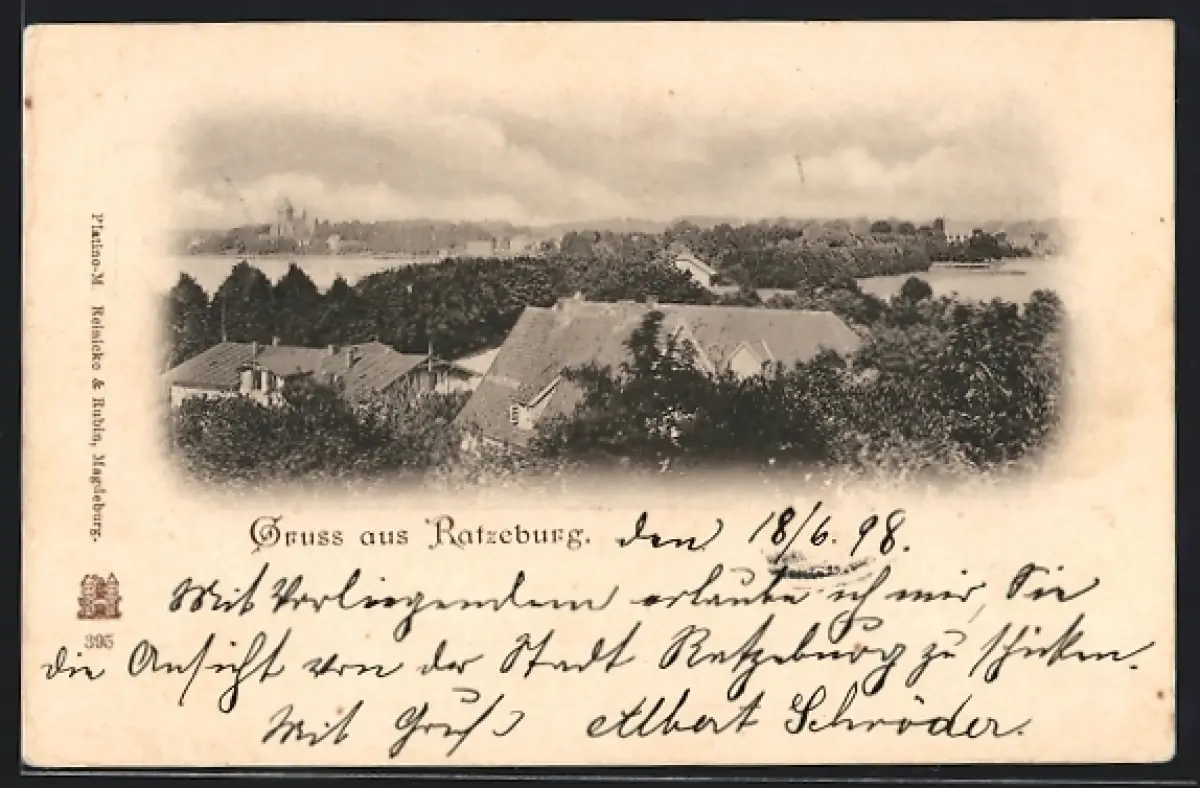 Gruss aus Ratzeburg. den 18/6. 98.
Mit Vorliegendem erlaube ich mir, Sie
die Ansicht von der Stadt Ratzeburg zu schicken.
Mit Gruß Albert Schröder.
Platino-M Reinicke & Rubin, Magdeburg.
395